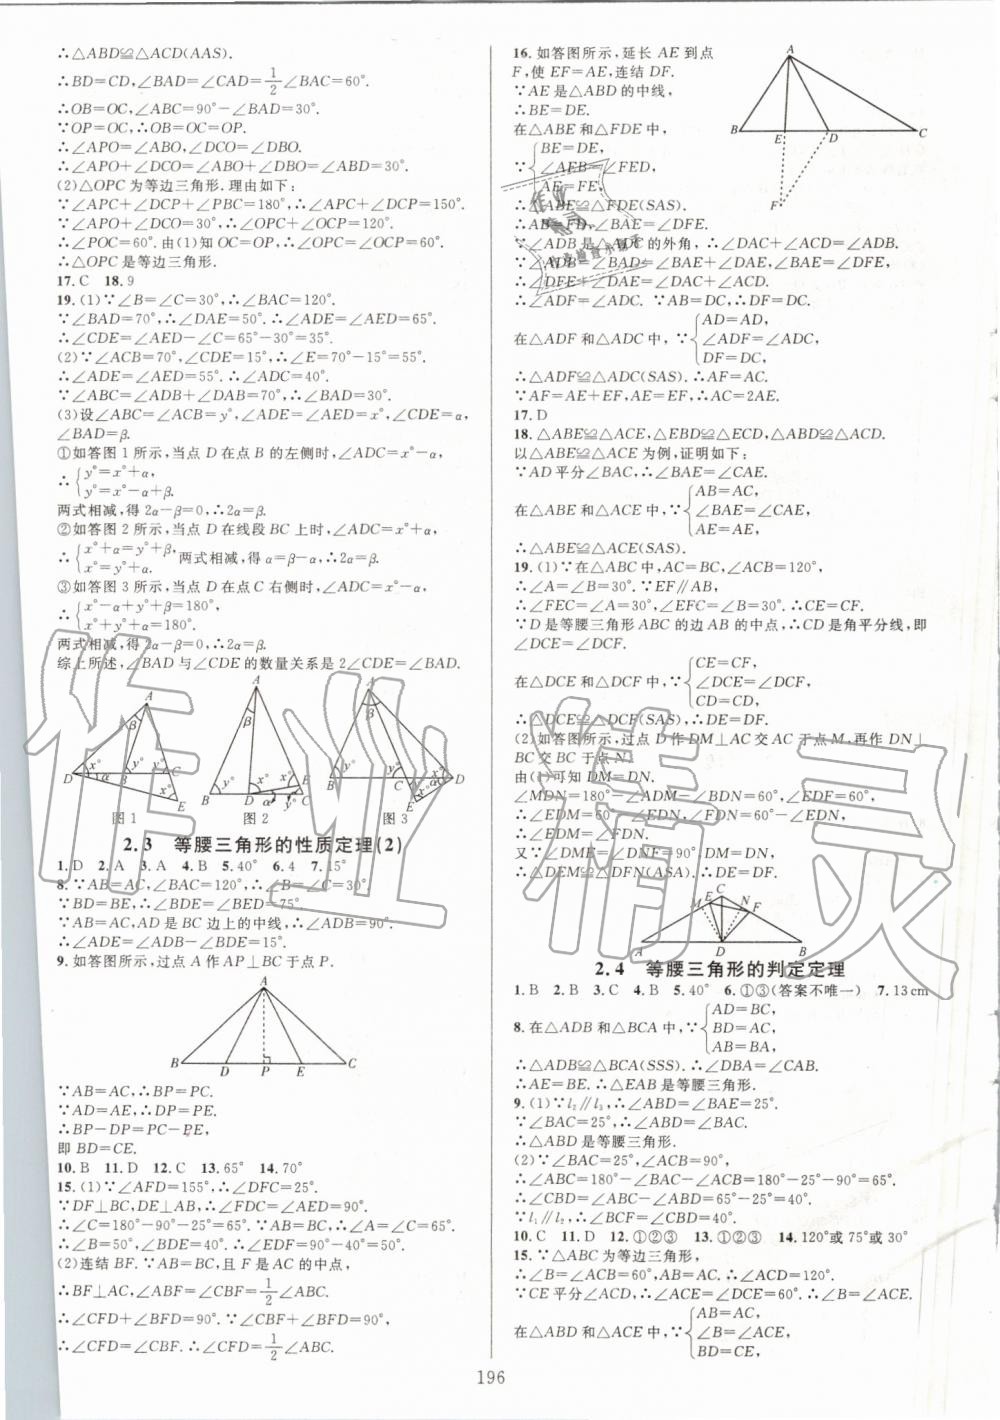 ∴△ABD≌△ACD(AAS).
∴BD=CD,∠BAD=∠CAD=1/2∠BAC=60°.
∴OB=OC,∠ABC=90°-∠BAD=30°.
∵OP=OC,∴OB=OC=OP.
∴∠APO=∠ABO,∠DCO=∠DBO.
∴∠APO+∠DCO=∠ABO+∠DBO=∠ABD=30°.
(2)△OPC 为等边三角形.理由如下:
∵∠APC+∠DCP+∠PBC=180°,∴∠APC+∠DCP=150°.
∵∠APO+∠DCO=30°,∴∠OPC+∠OCP=120°.
∴∠POC=60°.由(1)知 OC=OP,∴∠OPC=∠OCP=60°.
∴△OPC 是等边三角形.
17.C 18.9
19.(1)∵∠B=∠C=30°,∴∠BAC=120°.
∵∠BAD=70°,∴∠DAE=50°.∴∠ADE=∠AED=65°.
∴∠CDE=∠AED-∠C=65°-30°=35°.
(2)∵∠ACB=70°,∠CDE=15°,∴∠E=70°-15°=55°.
∴∠ADE=∠AED=55°.∴∠ADC=40°.
∵∠ABC=∠ADB+∠DAB=70°,∴∠BAD=30°.
(3)设∠ABC=∠ACB=y°,∠ADE=∠AED=x°,∠CDE=α,
∠BAD=β.
①如答图 1 所示,当点 D 在点 B 的左侧时,∠ADC=x°-α,
∴{y°=x°+α,
y°=x°-α+β.
两式相减,得 2α-β=0,∴2α=β.
②如答图 2 所示,当点 D 在线段 BC 上时,∠ADC=x°+α,
∴{x°+α=y°+β, 两式相减,得 α=β-α,∴2α=β.
x°=y°+α.
③如答图 3 所示,当点 D 在点 C 右侧时,∠ADC=x°-α,
∴{x°-α+y°+β=180°,
x°+y°+α=180°.
两式相减,得 2α-β=0,∴2α=β.
综上所述,∠BAD 与∠CDE 的数量关系是 2∠CDE=∠BAD.
图 1 图 2 图 3
2.3 等腰三角形的性质定理(2)
1.D 2.A 3.A 4.B 5.40° 6.4 7.15°
8.∵AB=AC,∠BAC=120°,∴∠B=∠C=30°.
∵BD=BE,∴∠BDE=∠BED=75°.
∵AB=AC,AD 是 BC 边上的中线,∴∠ADB=90°.
∴∠ADE=∠ADB-∠BDE=15°.
9.如答图所示,过点 A 作 AP⊥BC 于点 P.
A
B D P E C
∵AB=AC,∴BP=PC.
∵AD=AE,∴DP=PE.
∴BP-DP=PC-PE,
即 BD=CE.
10.B 11.D 12.C 13.65° 14.70°
15.(1)∵∠AFD=155°,∴∠DFC=25°.
∵DF⊥BC,DE⊥AB,∴∠FDC=∠AED=90°.
∴∠C=180°-90°-25°=65°.∵AB=BC,∴∠A=∠C=65°.
∴∠B=50°,∠BDE=40°,∴∠EDF=90°-40°=50°.
(2)连结 BF.∵AB=BC,且 F 是 AC 的中点,
∴BF⊥AC,∠ABF=∠CBF=1/2∠ABC.
∴∠CFD+∠BFD=90°.∵∠CBF+∠BFD=90°,
∴∠CFD=∠CBF.∴∠CFD=1/2∠ABC.
16.如答图所示,延长 AE 到点
F,使 EF=AE,连结 DF.
∵AE 是△ABD 的中线,
∴BE=DE.
在△ABE 和△FDE 中,
∵{BE=DE,
∠AEB=∠FED,
AE=FE,
∴△ABE≌△FDE(SAS).
∴AB=FD,∠BAE=∠DFE.
∵∠ADB 是△ADC 的外角,∴∠DAC+∠ACD=∠ADB.
∵∠ADB=∠BAD=∠BAE+∠DAE,∠BAE=∠DFE,
∴∠DFE+∠DAE=∠DAC+∠ACD.
∴∠ADF=∠ADC. ∵AB=DC,∴DF=DC.
在△ADF 和△ADC 中,∵{AD=AD,
∠ADF=∠ADC,
DF=DC,
∴△ADF≌△ADC(SAS).∴AF=AC.
∵AF=AE+EF,AE=EF,∴AC=2AE.
17.D
18.△ABE≌△ACE,△EBD≌△ECD,△ABD≌△ACD.
以△ABE≌△ACE 为例,证明如下:
∵AD 平分∠BAC,∴∠BAE=∠CAE.
在△ABE 和△ACE 中,∵{AB=AC,
∠BAE=∠CAE,
AE=AE,
∴△ABE≌△ACE(SAS).
19.(1)∵在△ABC 中,AC=BC,∠ACB=120°,
∴∠A=∠B=30°.∵EF∥AB,
∴∠FEC=∠A=30°,∠EFC=∠B=30°.∴CE=CF.
∵D 是等腰三角形 ABC 的边 AB 的中点,∴CD 是角平分线,即
∠DCE=∠DCF.
在△DCE 和△DCF 中,∵{CE=CF,
∠DCE=∠DCF,
CD=CD,
∴△DCE≌△DCF(SAS).∴DE=DF.
(2)如答图所示,过点 D 作 DM⊥AC 交 AC 于点 M,再作 DN⊥
BC 交 BC 于点 N.
由(1)可知 DM=DN.
∠MDN=180°-∠MDA-∠NDB=180°-60°-60°=60°.
∵∠EDF=∠EDM+∠MDF=60°,∠MDN=∠MDF+∠FDN=60°,
∴∠EDM=∠FDN.
又∵∠DME=∠DNF=90°,DM=DN,
∴△DEM≌△DFN(ASA).∴DE=DF.
2.4 等腰三角形的判定定理
1.B 2.B 3.C 4.B 5.40° 6.①③(答案不唯一) 7.13 cm
8.在△ADB 和△BCA 中,∵{AD=BC,
BD=AC,
AB=BA,
∴△ADB≌△BCA(SSS).∴∠DBA=∠CAB.
∴AE=BE.∴△EAB 是等腰三角形.
9.(1)∵l₂∥l₃,∴∠ABD=∠BAE=25°.
∴∠BAD=∠BAE=25°,∴∠BAD=∠ABD=25°.
∴△ABD 是等腰三角形.
(2)∵∠BAC=25°,∠ACB=90°,
∴∠ABC=180°-∠BAC-∠ACB=180°-25°-90°=65°.
∴∠CBD=∠ABC-∠ABD=65°-25°=40°.
∵l₁∥l₂,∴∠BCF=∠CBD=40°.
10.C 11.D 12.①②③ 13.①②③ 14.120°或 75°或 30°
15.∵△ABC 为等边三角形,
∴∠B=∠ACB=60°,AB=AC.∴∠ACD=120°.
∵CE 平分∠ACD,∴∠ACE=∠DCE=60°.∴∠B=∠ACE.
在△ABD 和△ACE 中,∵{AB=AC,
∠B=∠ACE,
BD=CE,
196